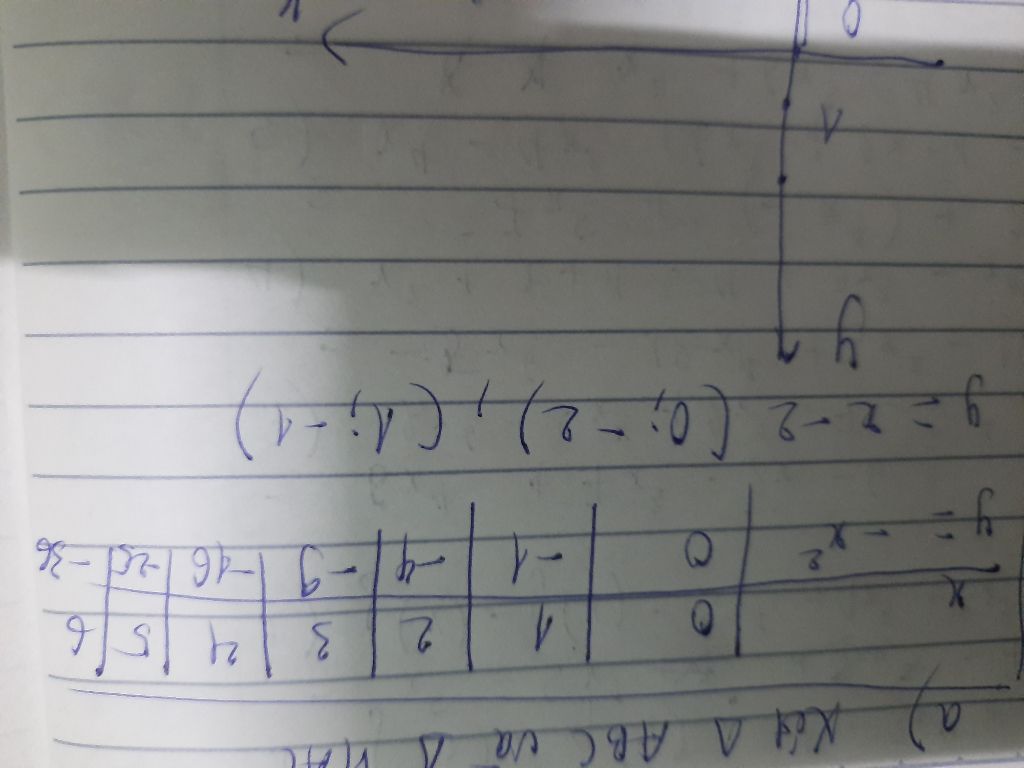 a) Xét Δ ABC và Δ
x 0 1 2 3 4 5 6
y = -x² 0 -1 -4 -9 -16 -25 -36
y = x - 2 (0; -2), (1; -1)
y
1
0